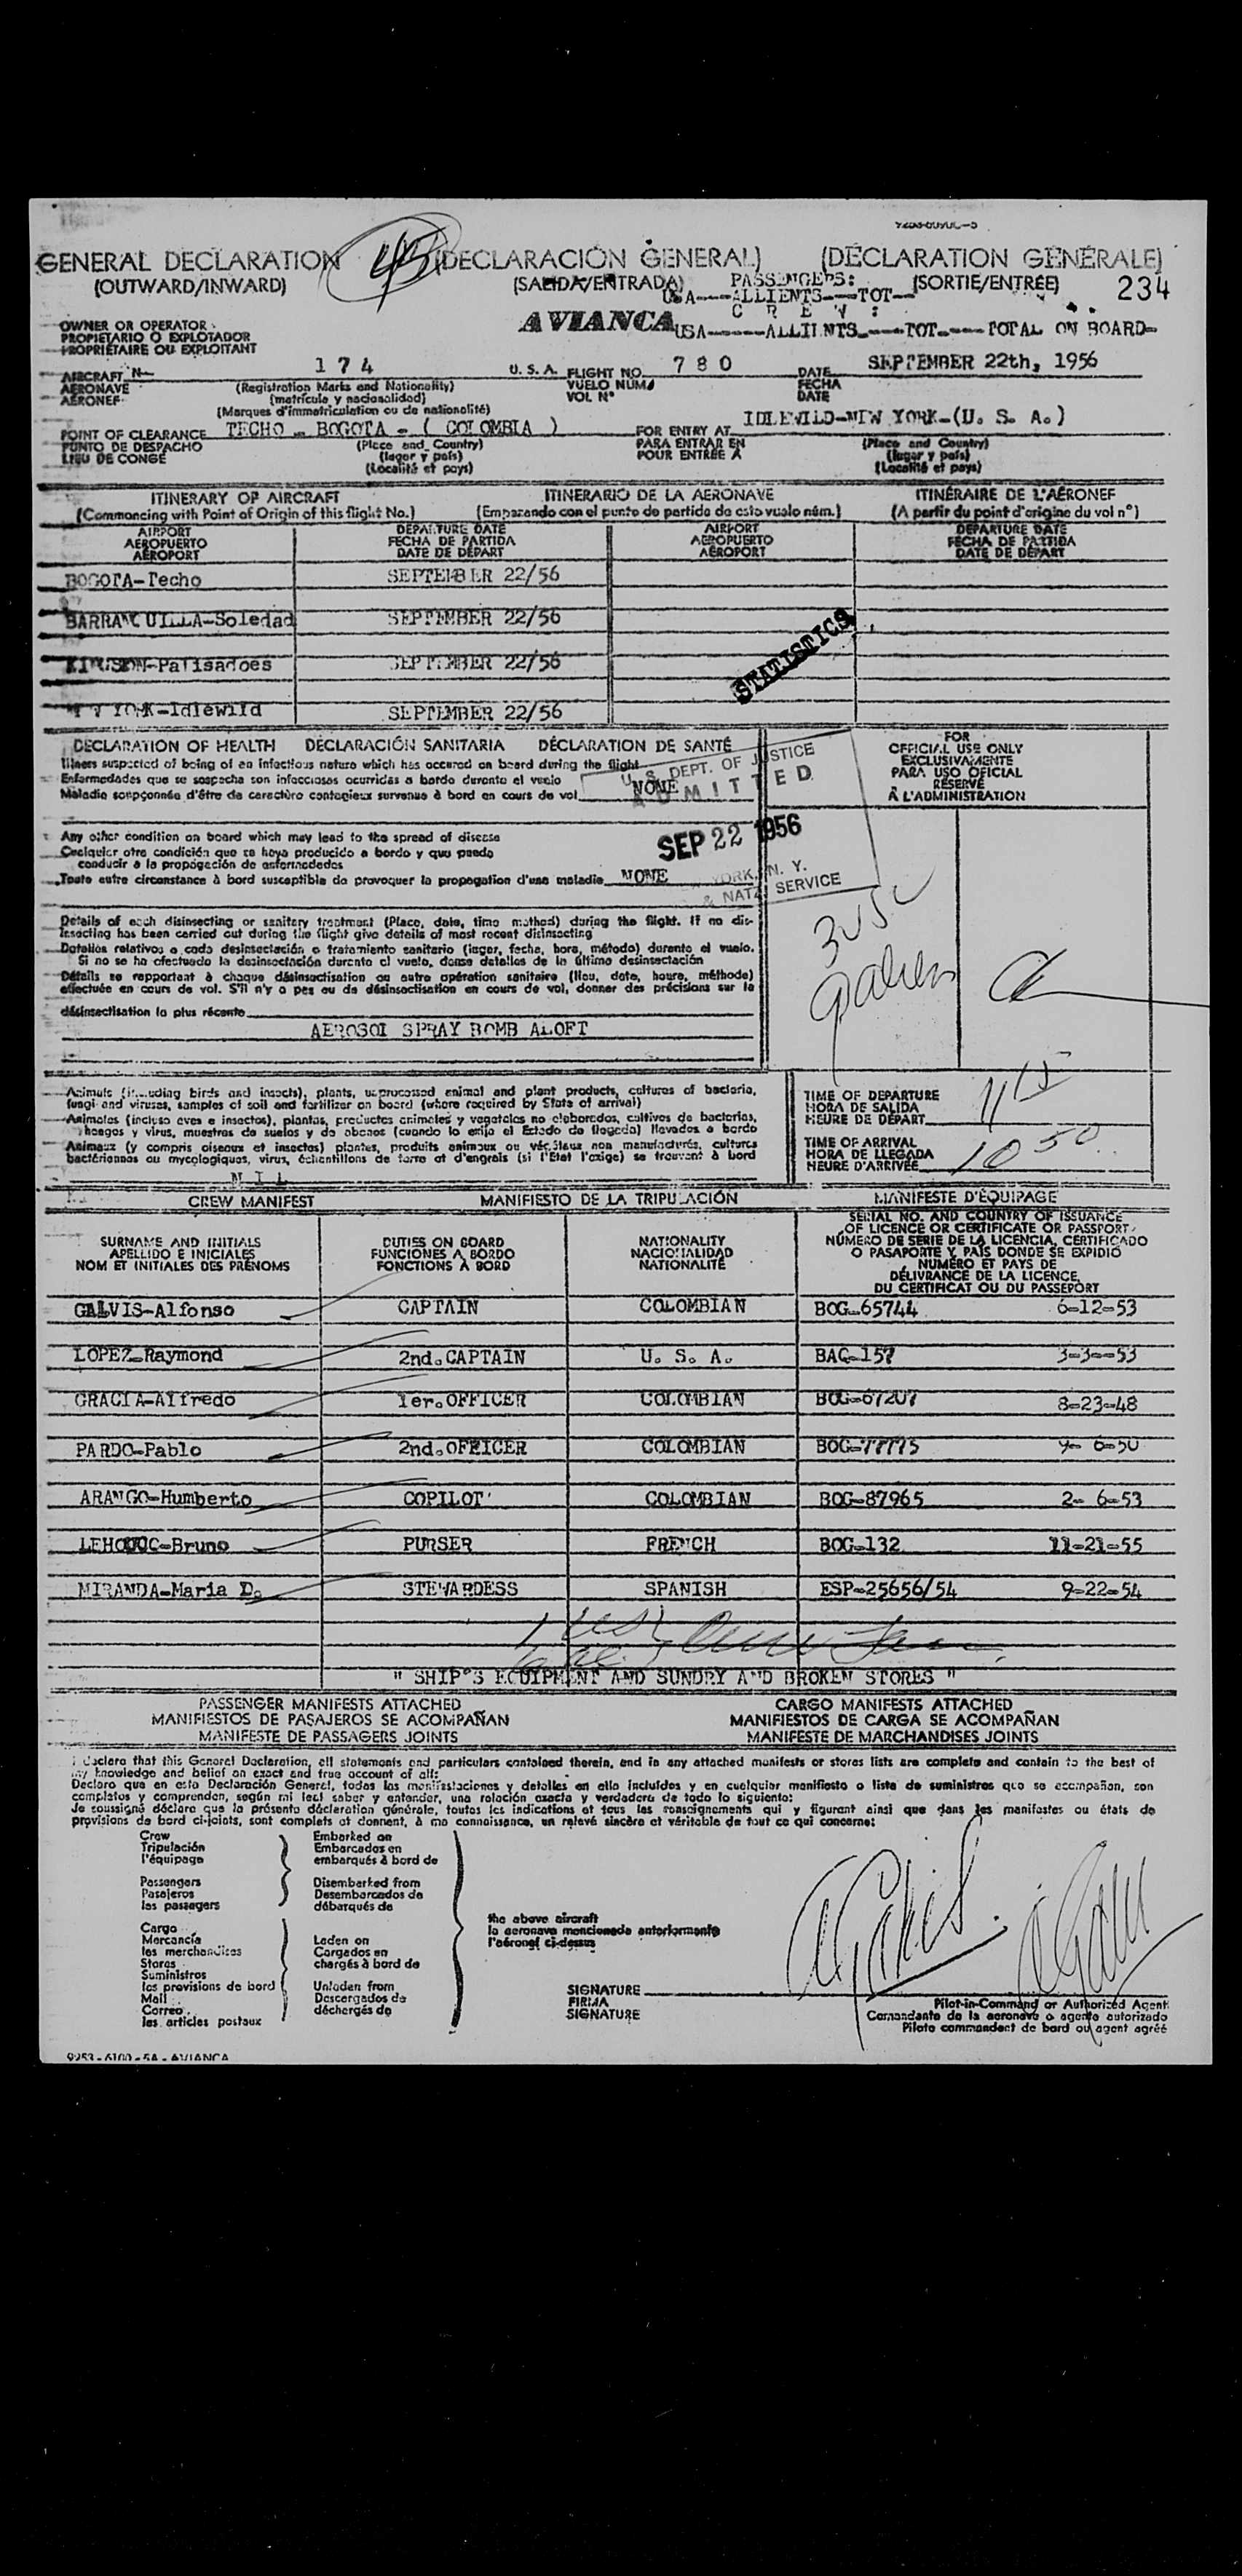 GENERAL DECLARATION (DECLARACIÓN GENERAL) (DÉCLARATION GÉNÉRALE)
(OUTWARD/INWARD) (SALIDA/ENTRADA) (SORTIE/ENTRÉE) 234
PASSENGERS:
USA----ALLIENTS----TOT--
C R E W :
AVIANCA USA------ALLIENTS----TOT----TOTAL ON BOARD--
OWNER OR OPERATOR
PROPIETARIO O EXPLOTADOR
PROPRIÉTAIRE OU EXPLOITANT
AIRCRAFT N- 174 U. S. A. FLIGHT NO. 780 DATE SEPTEMBER 22th, 1956
AERONAVE (Registration Marks and Nationality) VUELO NUM. FECHA
AÉRONEF (matrícula y nacionalidad) VOL Nº DATE
(Marques d'immatriculation ou de nationalité)
POINT OF CLEARANCE TECHO - BOGOTA - ( COLOMBIA ) FOR ENTRY AT IDLEWILD-NEW YORK-(U. S. A.)
PUNTO DE DESPACHO (Place and Country) PARA ENTRAR EN (Place and Country)
LIEU DE CONGÉ (lugar y país) POUR ENTRÉE À (lugar y país)
(Localité et pays) (Localité et pays)
ITINERARY OF AIRCRAFT ITINERARIO DE LA AERONAVE ITINÉRAIRE DE L'AÉRONEF
(Commencing with Point of Origin of this flight No.) (Empezando con el punto de partida de este vuelo núm.) (A partir du point d'origine du vol nº)
AIRPORT DEPARTURE DATE AIRPORT DEPARTURE DATE
AEROPUERTO FECHA DE PARTIDA AEROPUERTO FECHA DE PARTIDA
AÉROPORT DATE DE DÉPART AÉROPORT DATE DE DÉPART
BOGOTA-Techo SEPTEMBER 22/56
BARRANQUILLA-Soledad SEPTEMBER 22/56
KINGSTON-Palisadoes SEPTEMBER 22/56
STATISTICS
NEW YORK-Idlewild SEPTEMBER 22/56
DECLARATION OF HEALTH DECLARACIÓN SANITARIA DÉCLARATION DE SANTÉ
Illness suspected of being of an infectious nature which has occured on board during the flight
Enfermedades que se sospecha son infecciosas ocurridas a bordo durante el vuelo
Maladie soupçonnée d'être de caractère contagieux survenue à bord en cours de vol NONE
FOR
OFFICIAL USE ONLY
EXCLUSIVAMENTE
PARA USO OFICIAL
RÉSERVÉ
À L'ADMINISTRATION
U. S. DEPT. OF JUSTICE
ADMITTED
SEP 22 1956
YORK, N. Y.
& NATZ SERVICE
Any other condition on board which may lead to the spread of disease
Cualquier otra condición que se haya producido a bordo y que pueda
conducir a la propagación de enfermedades
Toute autre circonstance à bord susceptible de provoquer la propagation d'une maladie NONE
Details of each disinsecting or sanitary treatment (Place, date, time method) during the flight. If no dis-
insecting has been carried out during the flight give details of most recent disinsecting
Detalles relativos a cada desinsectación o tratamiento sanitario (lugar, fecha, hora, método) durante el vuelo.
Si no se ha efectuado la desinsectación durante el vuelo, dense detalles de la última desinsectación
Détails se rapportant à chaque désinsectisation ou autre opération sanitaire (lieu, date, heure, méthode)
effectuée en cours de vol. S'il n'y a pas eu de désinsectisation en cours de vol, donner des précisions sur la
désinsectisation la plus récente
AEROSOL SPRAY BOMB ALOFT
Animals (including birds and insects), plants, unprocessed animal and plant products, cultures of bacteria,
fungi and viruses, samples of soil and fertilizer on board (where required by State of arrival)
Animales (incluso aves e insectos), plantas, productos animales y vegetales no elaborados, cultivos de bacterias,
hongos y virus, muestras de suelos y de abonos (cuando lo exija el Estado de llegada) llevados a bordo
Animaux (y compris oiseaux et insectes) plantes, produits animaux ou végétaux non manufacturés, cultures
bactériennes ou mycologiques, virus, échantillons de terre et d'engrais (si l'État l'exige) se trouvant à bord
NIL
TIME OF DEPARTURE
HORA DE SALIDA
HEURE DE DÉPART
TIME OF ARRIVAL
HORA DE LLEGADA
HEURE D'ARRIVÉE 10 50
CREW MANIFEST MANIFIESTO DE LA TRIPULACIÓN MANIFESTE D'ÉQUIPAGE
SURNAME AND INITIALS DUTIES ON BOARD NATIONALITY SERIAL NO. AND COUNTRY OF ISSUANCE
APELLIDO E INICIALES FUNCIONES A BORDO NACIONALIDAD OF LICENCE OR CERTIFICATE OR PASSPORT
NOM ET INITIALES DES PRÉNOMS FONCTIONS À BORD NATIONALITÉ NÚMERO DE SERIE DE LA LICENCIA, CERTIFICADO
O PASAPORTE Y PAÍS DONDE SE EXPIDIÓ
NUMÉRO ET PAYS DE
DÉLIVRANCE DE LA LICENCE,
DU CERTIFICAT OU DU PASSEPORT
GALVIS-Alfonso CAPTAIN COLOMBIAN BOG-65744 6-12-53
LOPEZ-Raymond 2nd.CAPTAIN U. S. A. BAQ-157 3-3--53
GRACIA-Alfredo 1er.OFFICER COLOMBIAN BOG-67207 8-23-48
PARDO-Pablo 2nd.OFFICER COLOMBIAN BOG-77775
ARANGO-Humberto COPILOT COLOMBIAN BOG-87965 2- 6-53
LEHOUUC-Bruno PURSER FRENCH BOG-132 11-21-55
MIRANDA-Maria D. STEWARDESS SPANISH ESP-25656/54 9-22-54
" SHIP'S EQUIPMENT AND SUNDRY AND BROKEN STORES "
PASSENGER MANIFESTS ATTACHED CARGO MANIFESTS ATTACHED
MANIFIESTOS DE PASAJEROS SE ACOMPAÑAN MANIFIESTOS DE CARGA SE ACOMPAÑAN
MANIFESTE DE PASSAGERS JOINTS MANIFESTE DE MARCHANDISES JOINTS
I declare that this General Declaration, all statements and particulars contained therein, and in any attached manifests or stores lists are complete and contain to the best of
my knowledge and belief an exact and true account of all:
Declaro que en esta Declaración General, todas las manifestaciones y detalles en ella incluídos y en cualquier manifiesto o lista de suministros que se acompañan, son
completos y comprenden, según mi leal saber y entender, una relación exacta y verdadera de todo lo siguiente:
Je soussigné déclare que la présente déclaration générale, toutes les indications et tous les renseignements qui y figurent ainsi que dans les manifestes ou états de
provisions de bord ci-joints, sont complets et donnent, à ma connaissance, un relevé sincère et véritable de tout ce qui concerne:
Crew Embarked on
Tripulación Embarcados en
l'équipage embarqués à bord de
Passengers Disembarked from
Pasajeros Desembarcados de
les passagers débarqués de
Cargo the above aircraft
Mercancía Laden on la aeronave mencionada anteriormente
les merchandises Cargados en l'aéronef ci-dessus
Stores chargés à bord de
Suministros
les provisions de bord Unladen from SIGNATURE
Mail Descargados de FIRMA
Correo déchargés de SIGNATURE
les articles postaux
Pilot-in-Command or Authorized Agent
Comandante de la aeronave o agente autorizado
Pilote commandant de bord ou agent agréé
9953-6100-5A - AVIANCA